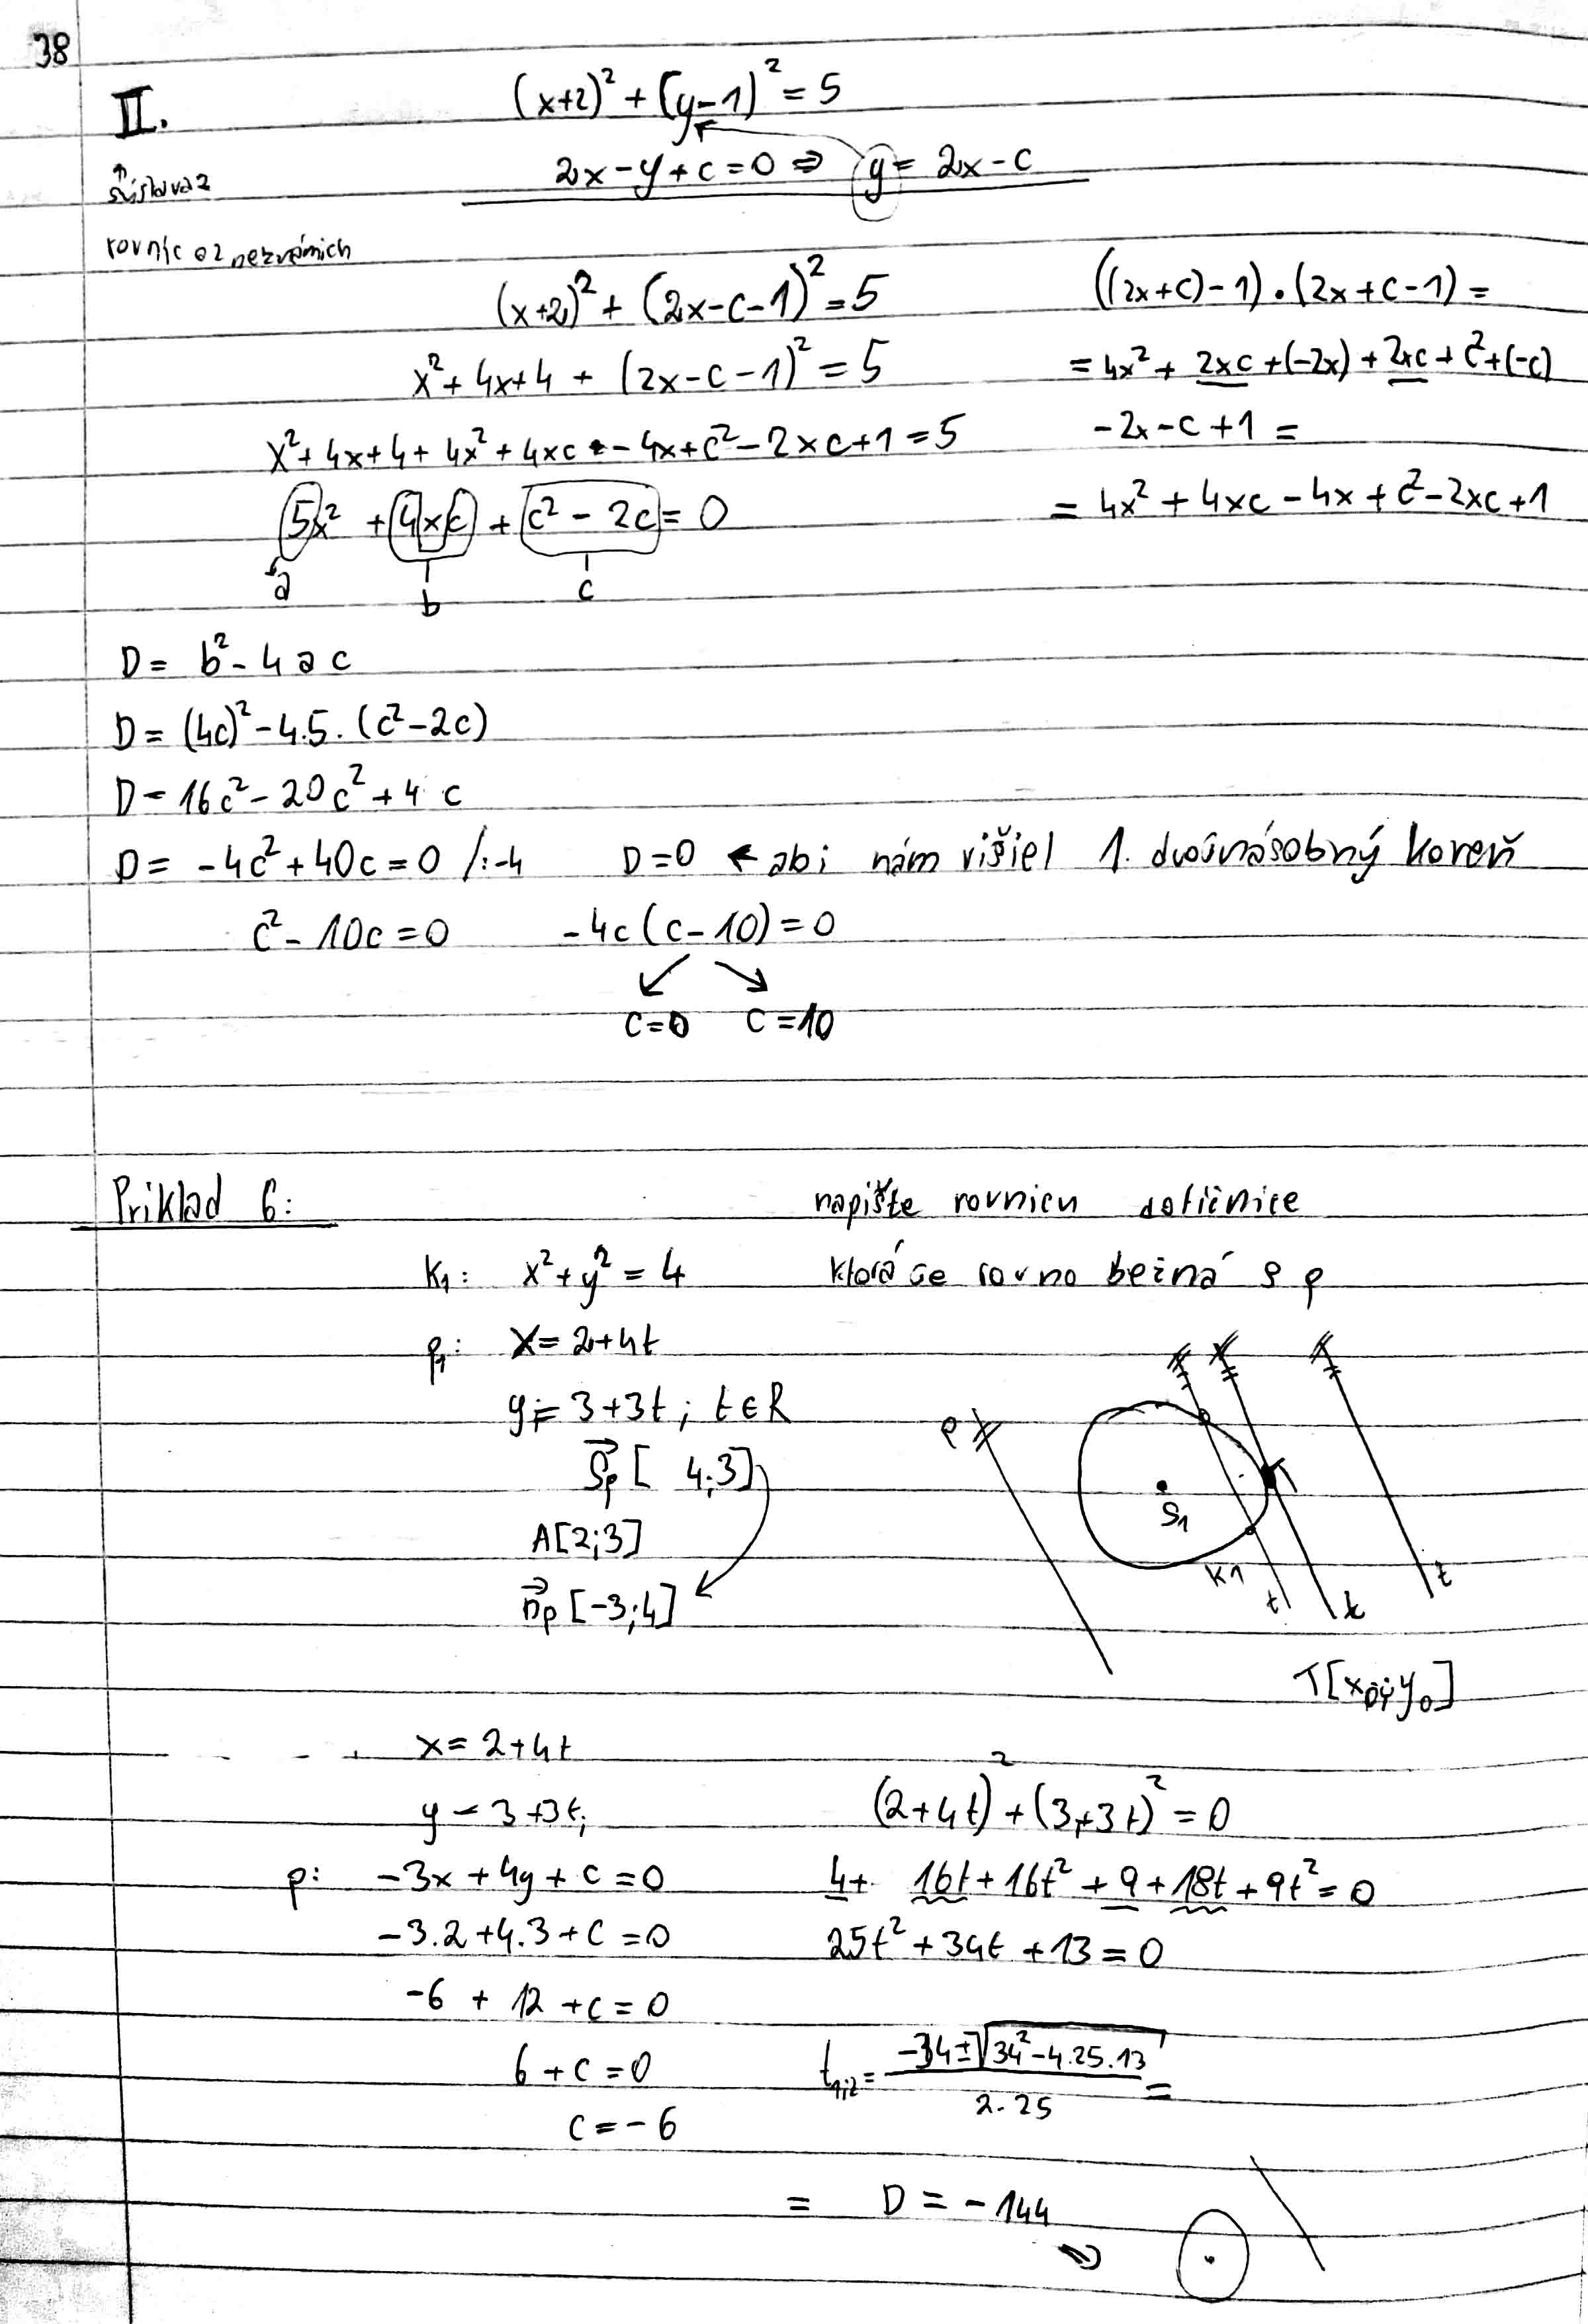 38
II.
(x+2)² + (y-1)² = 5
2x-y+c=0 ⇒ y = 2x-c
↑
sústava 2
rovníc o 2 neznámich
(x+2)² + (2x-c-1)² = 5
x²+4x+4 + (2x-c-1)² = 5
x²+4x+4+4x²+4xc - 4x+c²-2xc+1=5
5x² + 4xc + c² - 2c = 0
a b c
((2x+c)-1).(2x+c-1)=
=4x²+2xc+(-2x)+2xc+c²+(-c)
-2x-c+1=
=4x²+4xc-4x+c²-2xc+1
D= b²-4ac
D= (4c)²-4.5.(c²-2c)
D= 16c²-20c²+4 c
D= -4c²+40c=0 /:-4 D=0 ← abi nám višiel 1. dvojnásobný koreň
c²-10c=0 -4c(c-10)=0
c=0 c=10
Príklad 6:
napište rovnicu dotičnice
ktorá je rovno bežná s p
k₁: x²+y²=4
p₁: x=2+4t
y=3+3t; t∈R
S⃗p[ 4;3]
A[2;3]
n⃗p[-3;4]
p
S₁
T
k1
t
t
t
T[x₀;y₀]
x=2+4t
y=3+3t;
p: -3x+4y+c=0
-3.2+4.3+c=0
-6+12+c=0
6+c=0
c=-6
(2+4t)²+(3+3t)²=0
4+ 16t+16t²+9+18t+9t²=0
25t²+34t+13=0
t₁;₂= -34±√34²-4.25.13 / 2.25 =
= D=-144
⇒